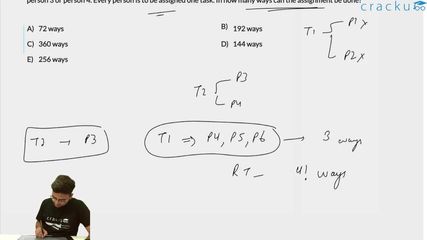 person 3 or person 4. Every person is to be assigned one task. In how many ways can the assignment be done?
cracku
A) 72 ways
B) 192 ways
C) 360 ways
D) 144 ways
E) 256 ways
T1
P1 x
P2 x
T2
P3
P4
T2 → P3
T1 ⇒ P4, P5, P6 → 3 ways
RT_ 4! ways